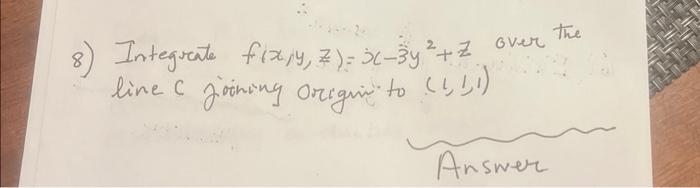 8) Integrate f(x,y,z)=x-3y²+z over the
line C joining origin to (1,1,1)
Answer